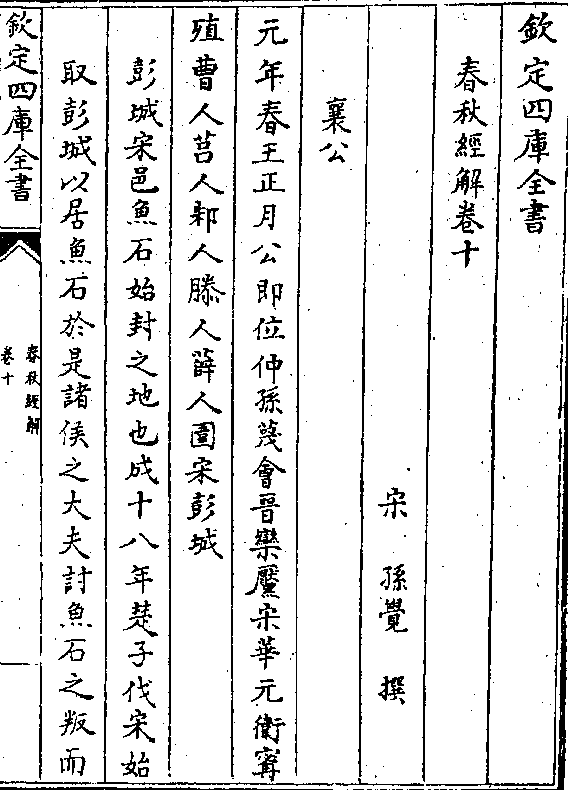 欽定四庫全書
春秋經解卷十
宋 孫覺 撰
襄公
元年春王正月公即位仲孫蔑會晉欒黶宋華元衛寗
殖曹人莒人邾人滕人薛人圍宋彭城
彭城宋邑魚石始封之地也成十八年楚子伐宋始
取彭城以居魚石於是諸侯之大夫討魚石之叛而
欽定四庫全書
春秋經解
卷十